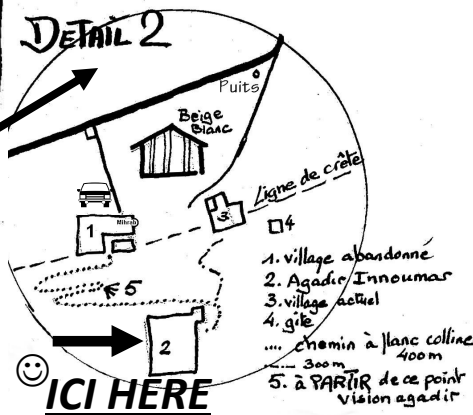 DETAIL 2
Puits
Beige
Blanc
Ligne de crête
1
Mihrab
3
4
5
2
1. village abandonné
2. Agadir Innoumar
3. village actuel
4. gîte
.... chemin à flanc colline
400m
300m
5. à PARTIR de ce point
vision agadir
ICI HERE